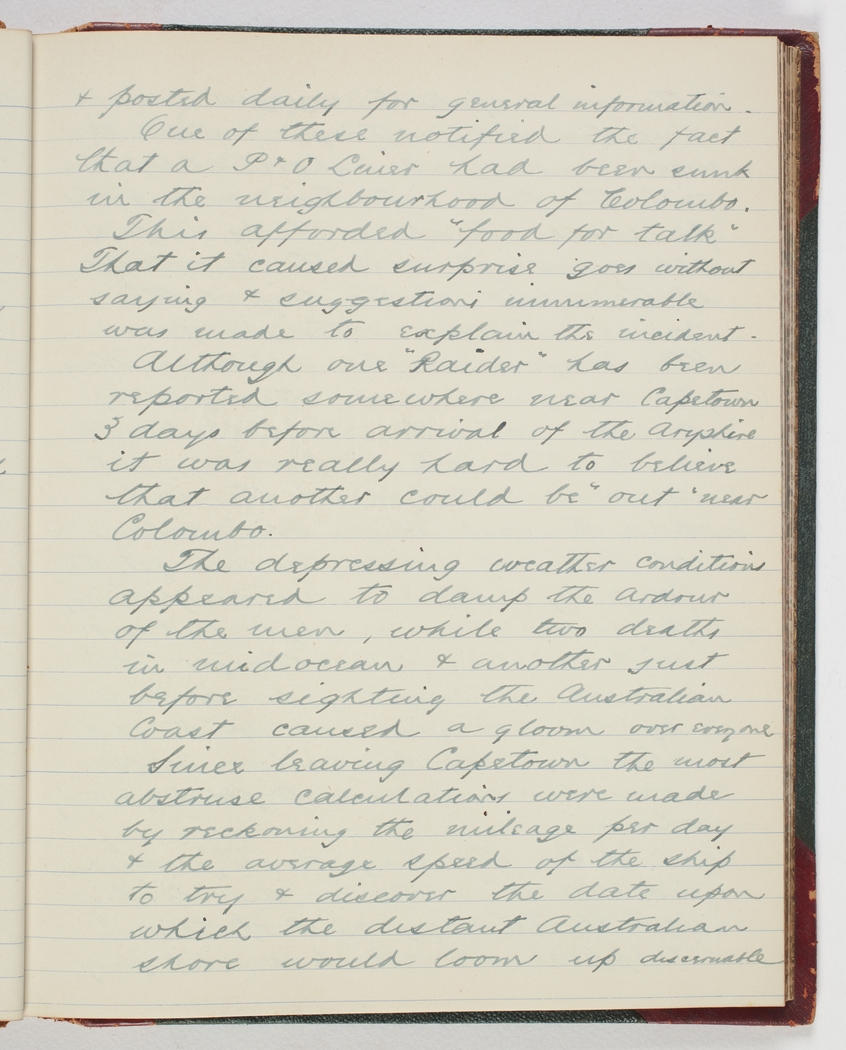 & posted daily for general information.
One of these notified the fact
that a P & O Liner had been sunk
in the neighbourhood of Colombo.
This afforded "food for talk"
That it caused surprise goes without
saying & suggestions innumerable
was made to explain the incident.
Although one "Raider" has been
reported somewhere near Capetown
3 days before arrival of the
it was really hard to believe
that another could be "out" near
Colombo.
The depressing weather conditions
appeared to damp the ardour
of the men, while two deaths
in mid ocean & another just
before sighting the Australian
Coast caused a gloom over everyone
Since leaving Capetown the most
abstruse calculations were made
by reckoning the mileage per day
& the average speed of the ship
to try & discover the date upon
which the distant Australian
shore would loom up discernable